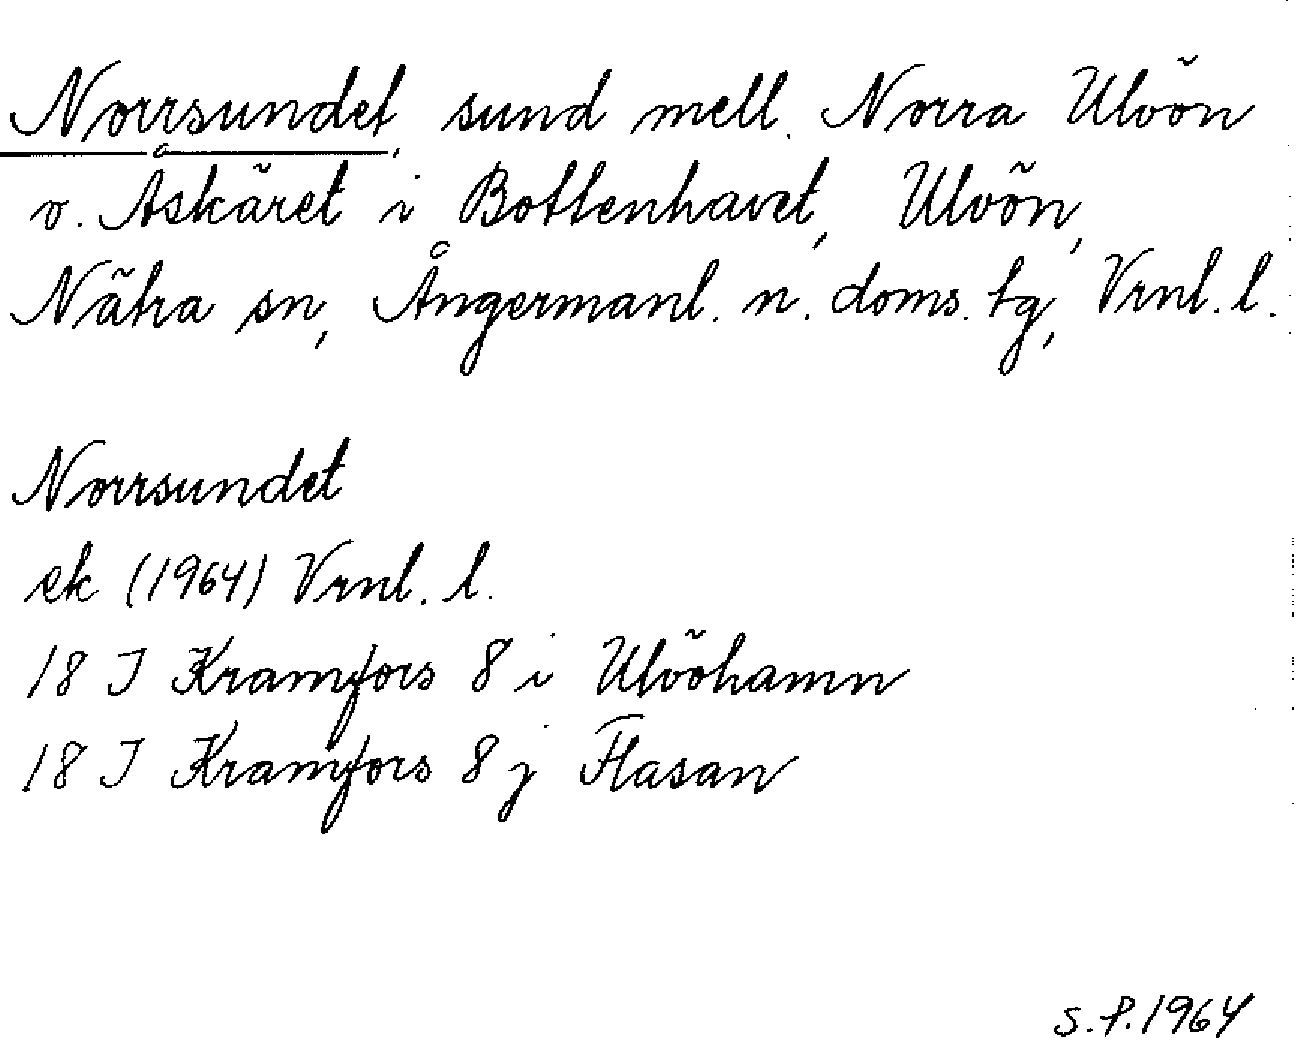 Norrsundet, sund mell. Norra Ulvön
o. Åskäret i Bottenhavet, Ulvön,
Nätra sn, Ångermanl. n. doms. tg, Vrnl. l.
Norrsundet
ek (1964) Vrnl. l.
18 I Kramfors 8 i Ulvöhamn
18 I Kramfors 8 j Flasan
S.P. 1964